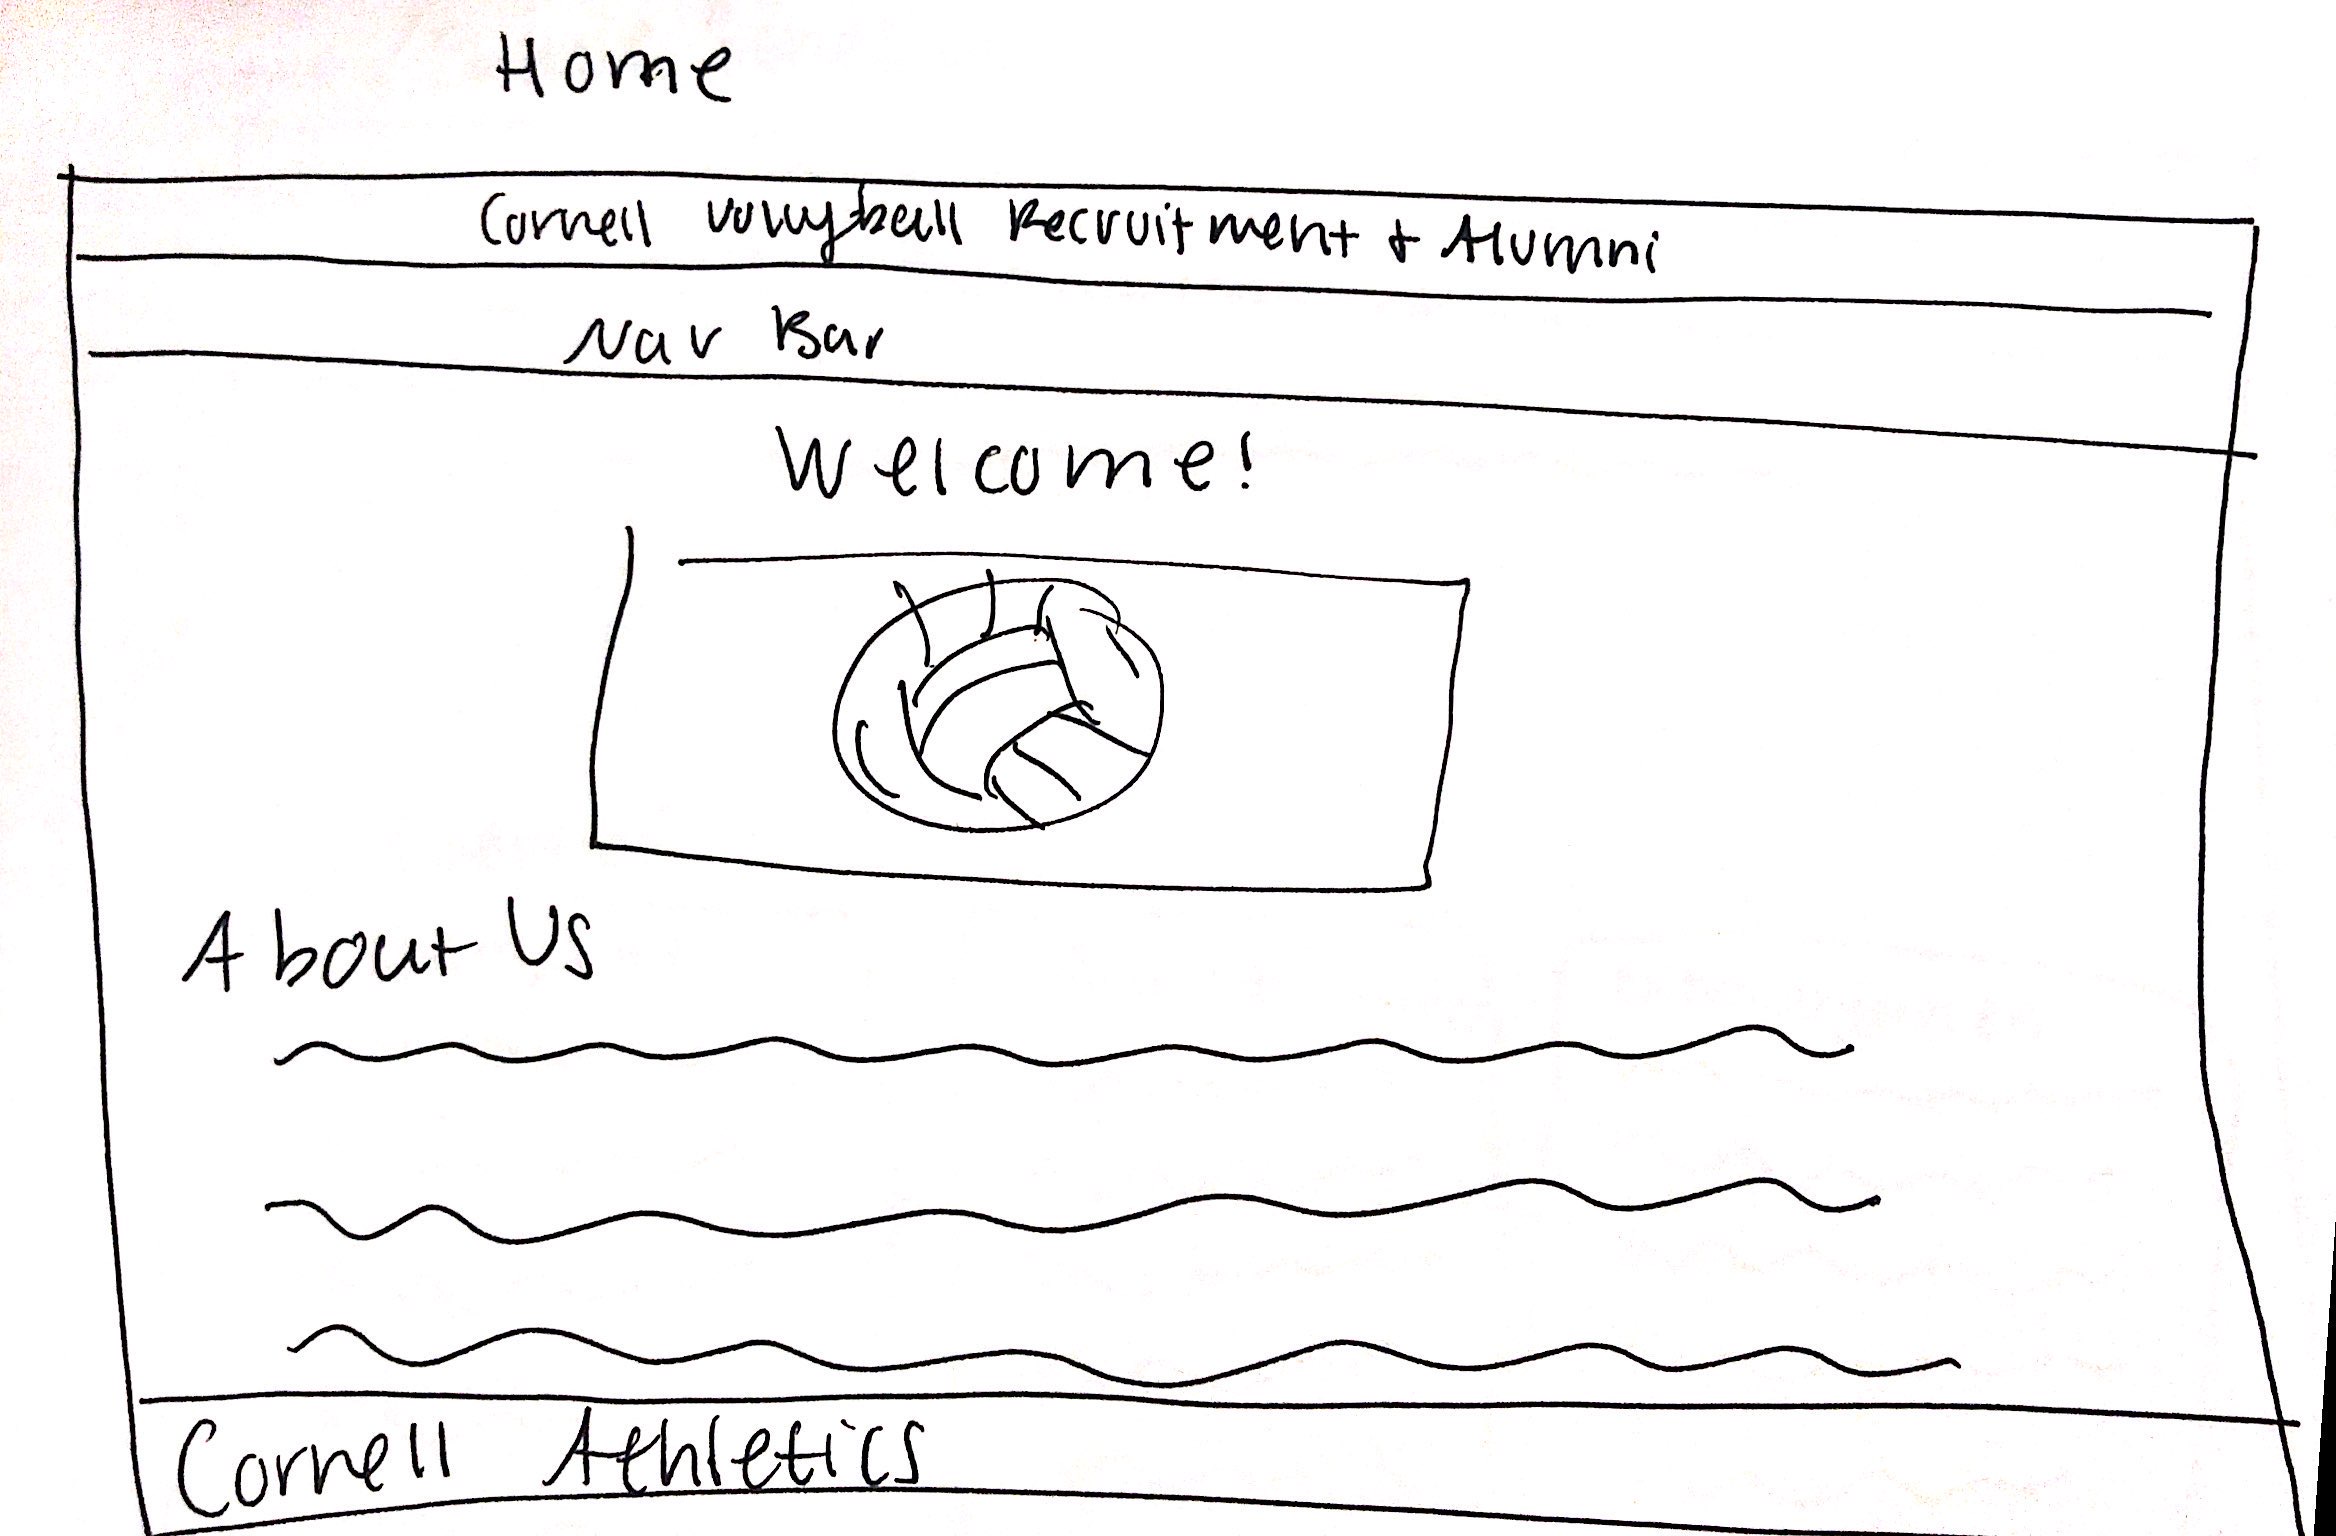 Home
Cornell Volleyball Recruitment + Alumni
Nav Bar
Welcome!
About Us
Cornell Athletics